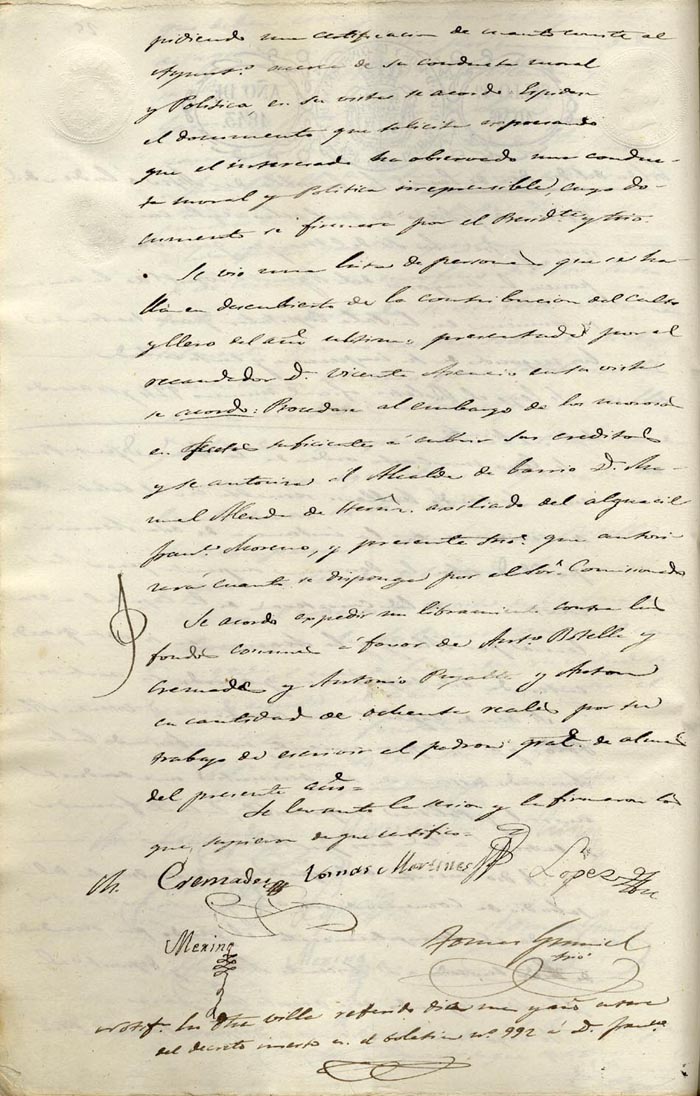 pidiendo una certificacion de cuanto conste al
Ayuntº. acerca de su conducta moral
y Politica en su vista se acordo Espidase
el documento que solicita espresando
que el interesado ha observado una conduc-
ta moral y Politica irreprensible, cuyo do-
cumento se firmara por el Presidte. y Srio.
Se vio una lista de personas que se ha-
llan en descubierto de la contribucion del Culto
y Clero del año ultimo, presentada por el
recaudador D. Vicente Asencio en su vista
se acordo: Procedase al embargo de los morosos
en suficientes a cubrir sus creditos
y se autoriza al Alcalde de barrio D. Ma-
nuel de ausiliado del alguacil
Franco. Moreno, y presente Srio. que autori-
zará cuanto se disponga por el Sor. Comisionado
Se acordo expedir un libramiento contra los
fondos comunes á favor de Anto. Botella y
Cremades y Antonio y
en cantidad de ochenta reales por su
trabajo de escrivir el padron gral. de almas
del presente año=
Se levanto la sesion y la firmaron los
que supieron de que certifico=
Cremades Tomas Martinez Lopez
Merino Tomas
Srio
Notif. En dha villa referido dia mes y año entere
del decreto inserto en el boletin nº 992 á D. Franco.